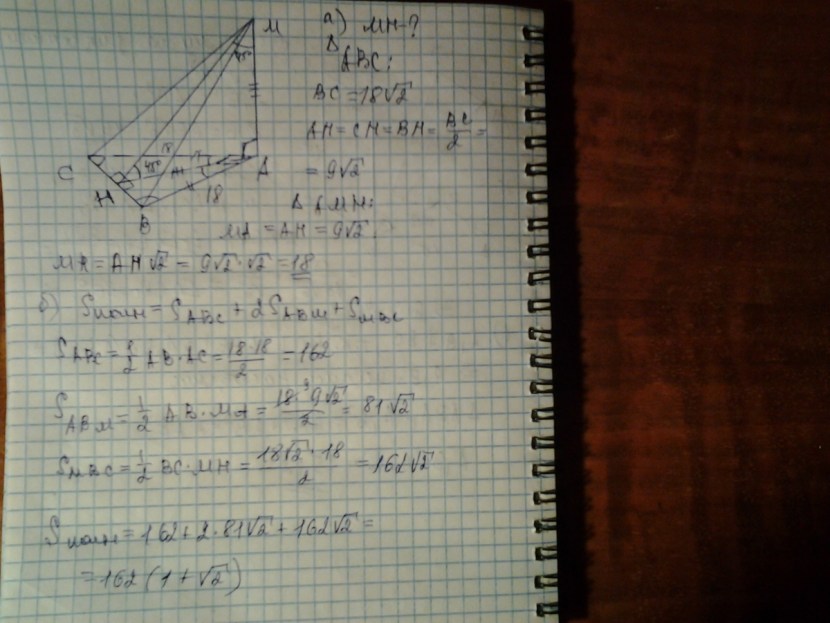 а) MH-?
Δ ABC:
BC = 18√2
AH = CH = BH = BC/2 =
= 9√2
Δ AMH:
MA = AH = 9√2.
MH = AH√2 = 9√2·√2 = 18
б) Sполн = SABC + 2SABM + SMBC
SABC = 1/2 AB·AC = 18·18/2 = 162
SABM = 1/2 AB·MA = 18·9√2/2 = 81√2
SMBC = 1/2 BC·MH = 18√2·18/2 = 162√2
Sполн = 162 + 2·81√2 + 162√2 =
= 162 (1 + √2)
M
45°
C
45°
A
H
18
B